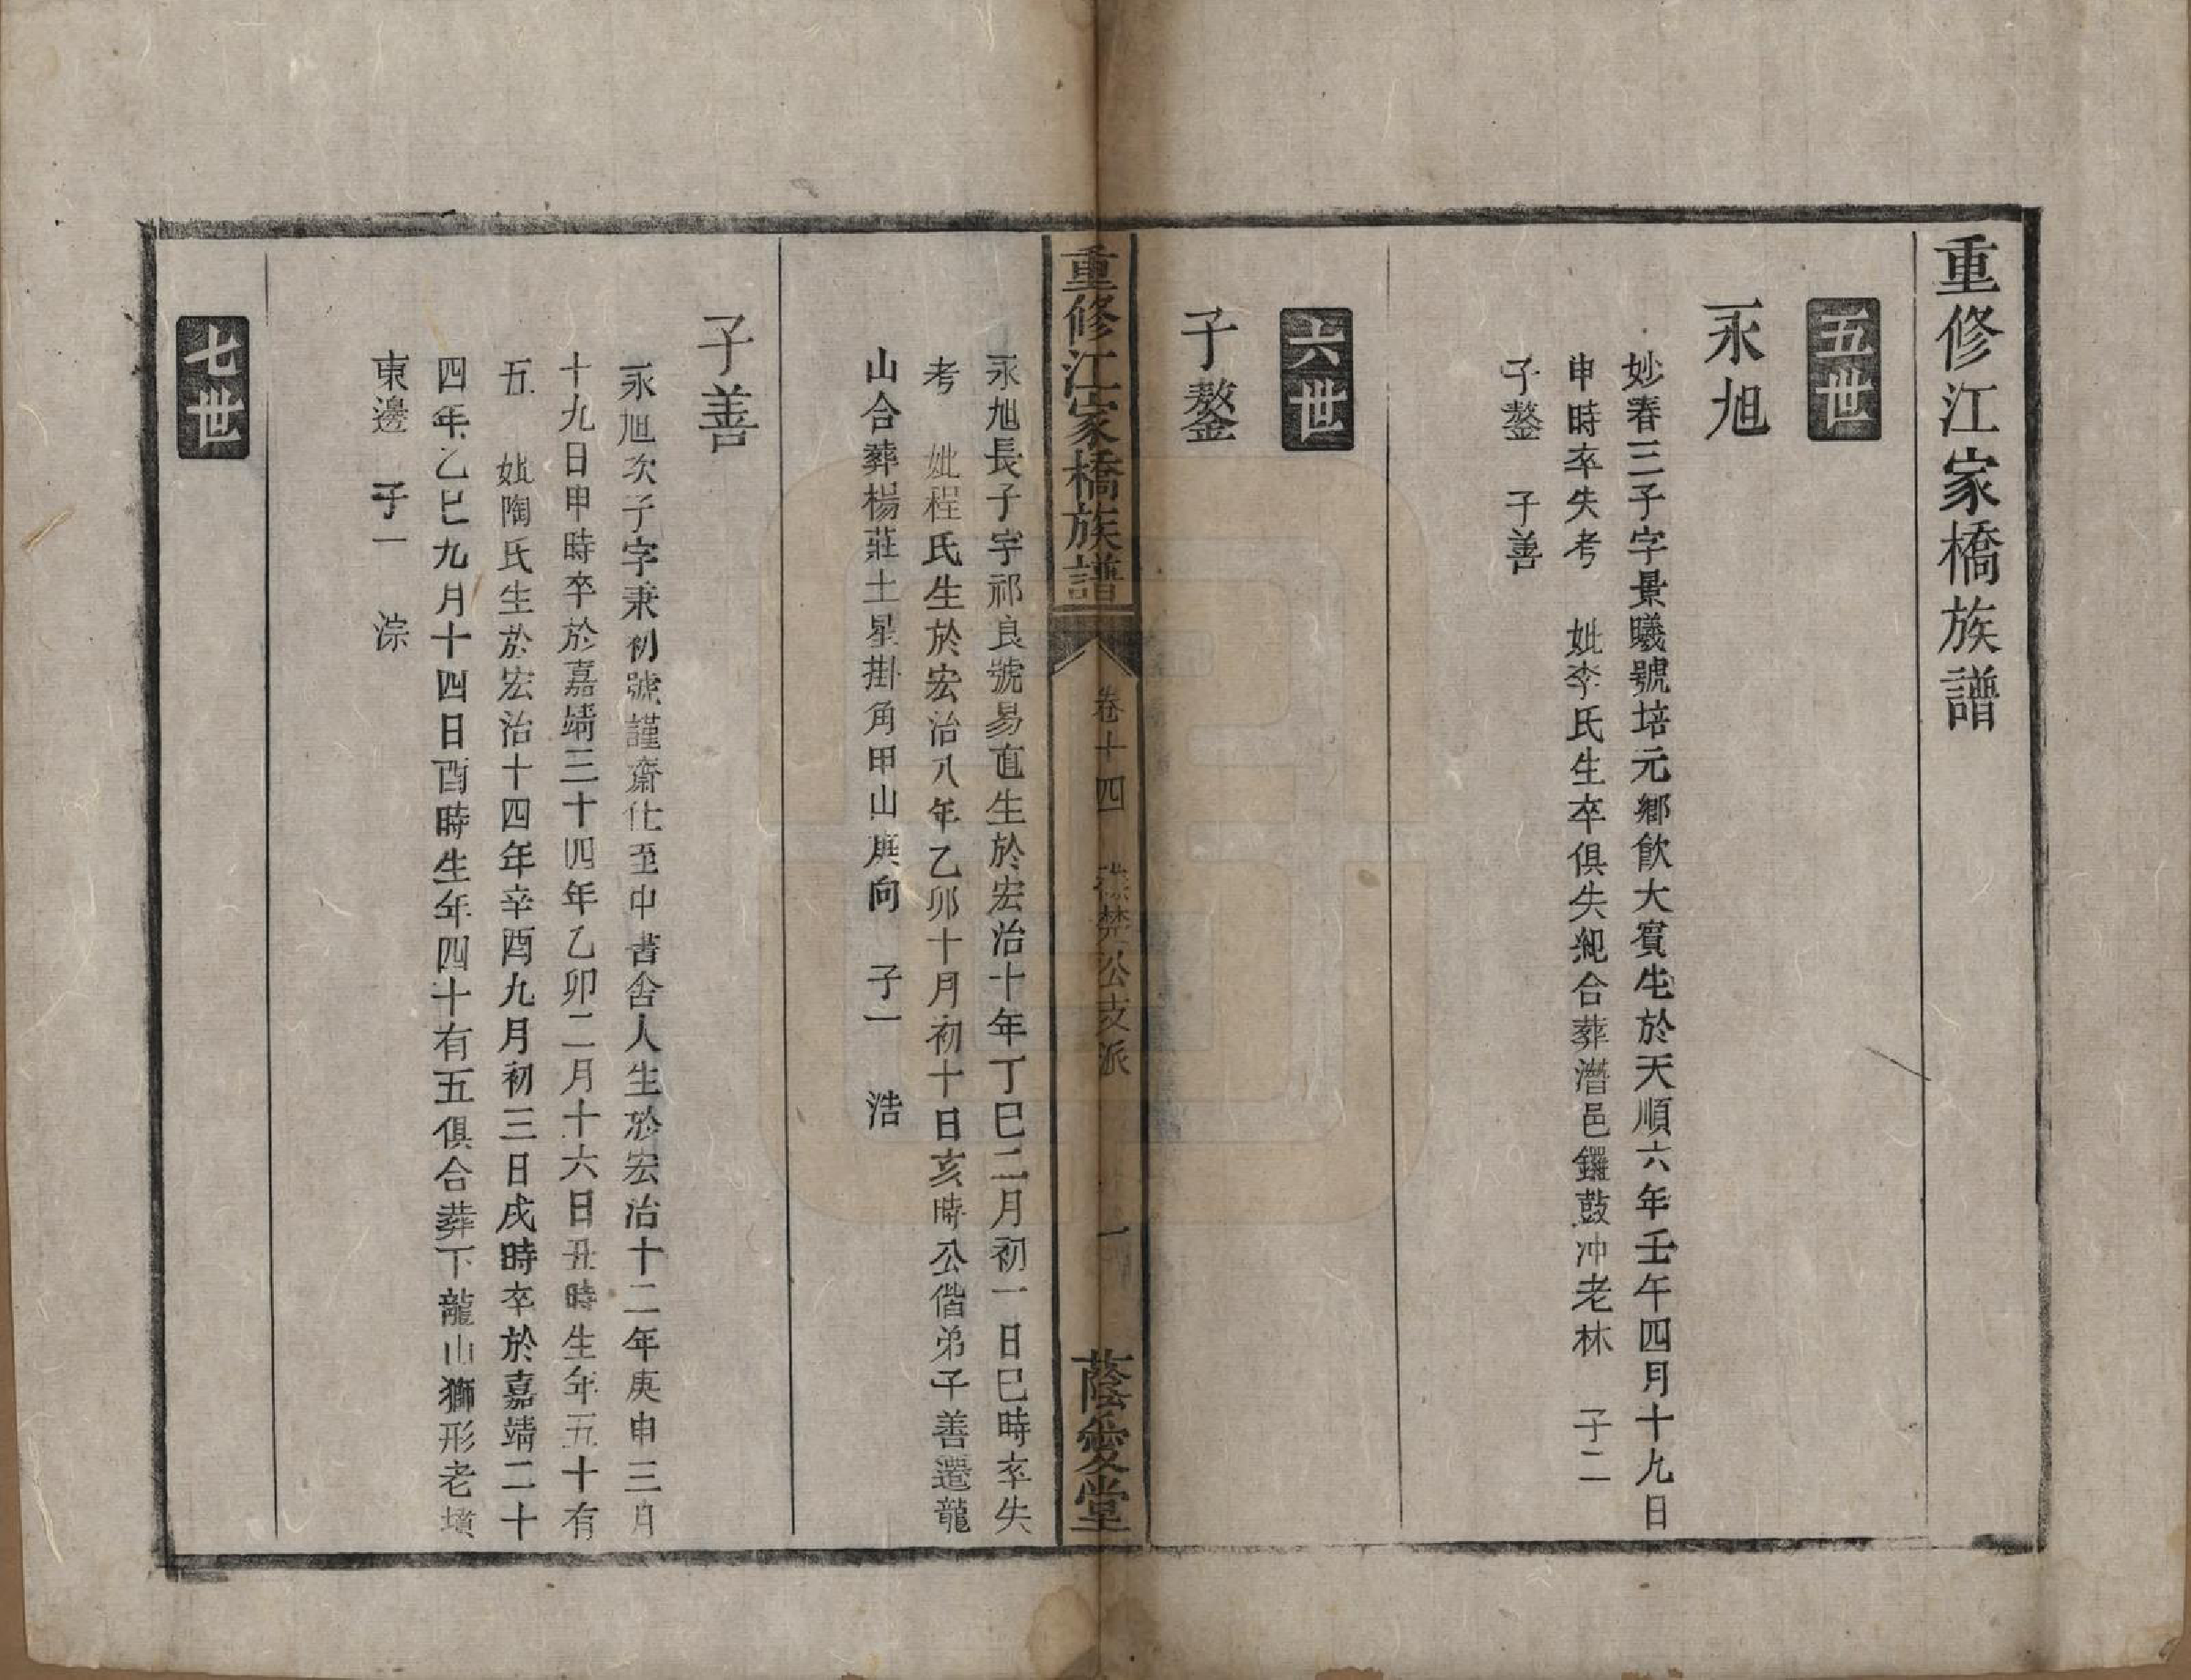 重修江家橋族譜
五世
永旭
妙春三子字景曦號培元鄉飲大賓生於天順六年壬午四月十九日
申時卒失考　妣李氏生卒俱失紀合葬濳邑鑼鼓冲老林　子二
子鏊　子善
六世
子鏊
重修江家橋族譜　卷十四　公支派　一　蔭愛堂
永旭長子字祁良號易直生於宏治十年丁巳二月初一日巳時卒失
考　妣程氏生於宏治八年乙卯十月初十日亥時公偕弟子善遷龍
山合葬楊莊土星掛角甲山庚向　子一　浩
子善
永旭次子字秉初號謹齋仕至中書舍人生於宏治十二年庚申三月
十九日申時卒於嘉靖三十四年乙卯二月十六日丑時生年五十有
五　妣陶氏生於宏治十四年辛酉九月初三日戌時卒於嘉靖二十
四年乙巳九月十四日酉時生年四十有五俱合葬下龍山獅形老墳
東邊　子一　淙
七世